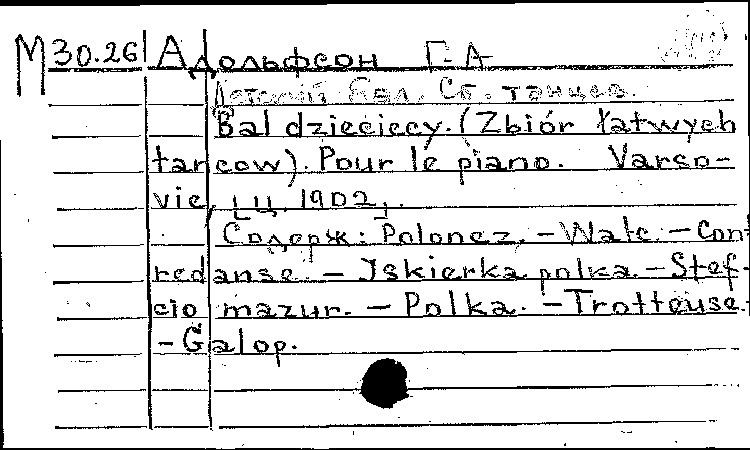 М30.26 Адольфсон Г.А
Детский бал. Сб. танцев.
Bal dziecięcy. (Zbiór łatwych
tancow). Pour le piano. Varso-
vie, [ц. 1902].
Содерж: Polonez. – Walc. – Cont
redanse. – Iskierka polka. – Stef-
cio mazur. – Polka. – Trotteuse.
– Galop.